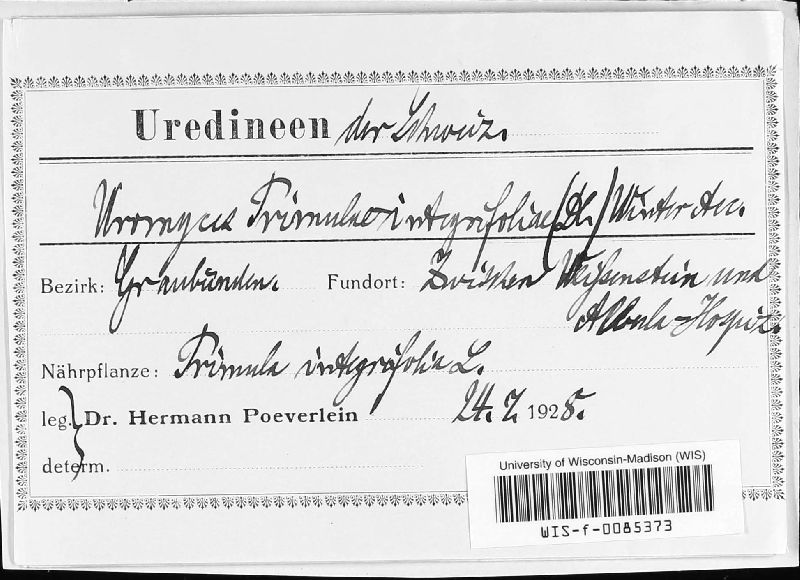 Uredineen der Schweiz.
Uromyces Primulae integrifoliae (DC.) Winter Aec.
Bezirk: Graubünden. Fundort: Zwischen Weißenstein und
Albula-Hospiz.
Nährpflanze: Primula integrifolia L.
leg. Dr. Hermann Poeverlein 24. 7. 1925.
determ.
University of Wisconsin-Madison (WIS)
WIS-f-0085373